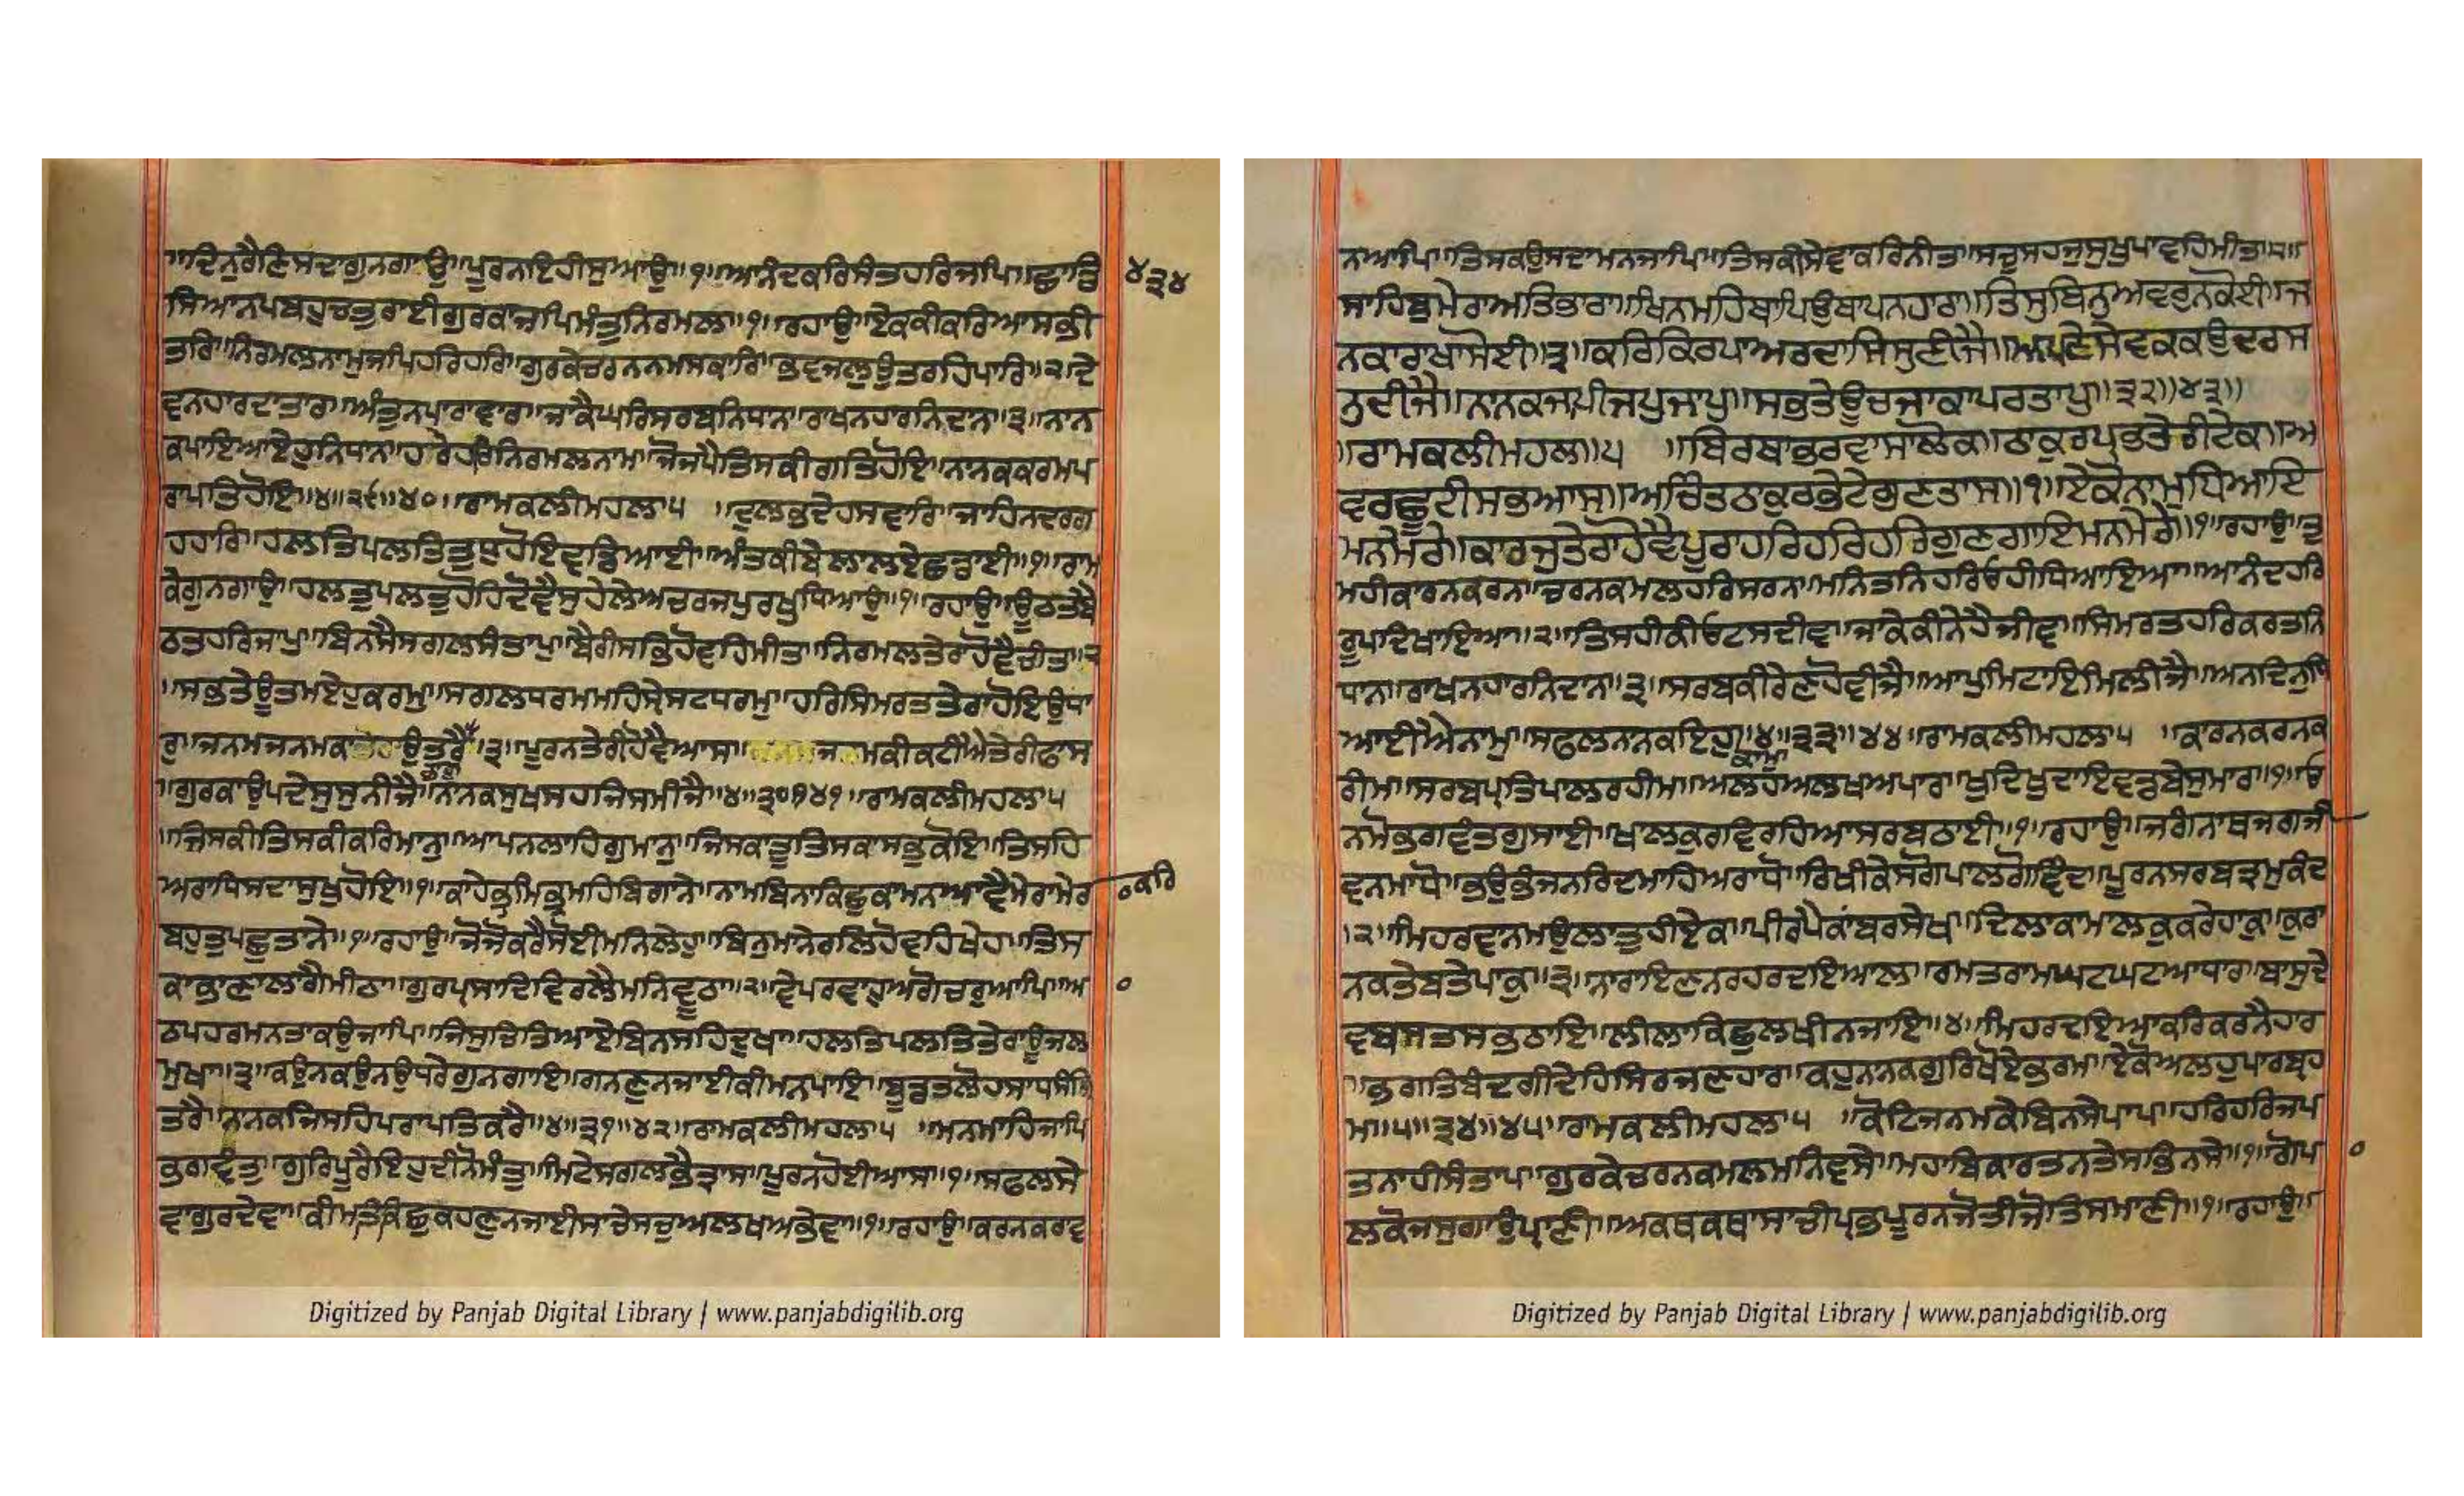 ॥ਦਿਨੁਰੈਣਿਸਦਾਗੁਨਗਾਉ॥ਪੂਰਨਾਇਹੀਸੁਆਉ॥੧॥ਆਨੰਦਕਰਿਸੰਤਹਰਿਜਪਿ॥ਛਾਡਿ
੪੩੪
ਸਿਆਨਪਬਹੁਚਤੁਰਾਈਗੁਰਕਾਜਪਿਮੰਤੁਨਿਰਮਲਾ॥੧॥ਰਹਾਉ॥ਏਕਕੀਕਰਿਆਸਭੀ
ਤਰਿ॥ਨਿਰਮਲਨਾਮੁਜਪਿਹਰਿਹਰਿ॥ਗੁਰਕੇਚਰਨਨਮਸਕਾਰਿ॥ਭਵਜਲੁਉਤਰਹਿਪਾਰਿ॥੨॥ਦੇ
ਵਨਹਾਰਦਾਤਾਰਾ॥ਅੰਤੁਨਪਾਰਾਵਾਰਾ॥ਜਾਕੈਘਰਿਸਰਬਨਿਧਾਨਾ॥ਰਾਖਨਹਾਰਨਿਦਾਨਾ॥੩॥ਨਾਨ
ਕਪਾਇਆਏਹੁਨਿਧਾਨਾ॥ਹਰੇਹਰਿਨਿਰਮਲਨਾਮਾ॥ਜੋਜਪੈਤਿਸਕੀਗਤਿਹੋਇ॥ਨਾਨਕਕਰਮਪ
ਰਾਪਤਿਹੋਇ॥੪॥੨੯॥੪੦॥ਰਾਮਕਲੀਮਹਲਾ੫ ॥ਦੁਲਭਦੇਹਸਵਾਰਿ॥ਜਾਹਿਨਦਰਗ
ਹਹਾਰਿ॥ਹਲਤਿਪਲਤਿਤੁਧੁਹੋਇਵਡਿਆਈ॥ਅੰਤਕੀਬੇਲਾਲਏਛਡਾਈ॥੧॥ਰਾਮ
ਕੇਗੁਨਗਾਉ॥ਹਲਤੁਪਲਤੁਹੋਹਿਦੋਵੈਸੁਹੇਲੇਅਚਰਜਪੁਰਖੁਧਿਆਉ॥੧॥ਰਹਾਉ॥ਊਠਤਬੈ
ਠਤਹਰਿਜਾਪੁ॥ਬਿਨਸੈਸਗਲਸੰਤਾਪੁ॥ਬੈਰੀਸਭਿਹੋਵਹਿਮੀਤਾ॥ਨਿਰਮਲਤੇਰਾਹੋਵੈਚੀਤਾ॥੨
॥ਸਭਤੇਊਤਮਏਹੁਕਰਮੁ॥ਸਗਲਧਰਮਮਹਿਸ੍ਰੇਸਟਧਰਮੁ॥ਹਰਿਸਿਮਰਤਤੇਰਾਹੋਇਉਧਾ
ਰੁ॥ਜਨਮਜਨਮਕਾ ਉਤਰੈ ॥੩॥ਪੂਰਨਤੇਰੀਹੋਵੈਆਸਾ॥ ਮਕੀਕਟੀਐਤੇਰੀਫਾਸ
॥ਗੁਰਕਾਉਪਦੇਸੁਸੁਨੀਜੈ॥ਨਾਨਕਸੁਖਸਹਜਿਸਮੀਜੈ॥੪॥੩੦॥੪੧॥ਰਾਮਕਲੀਮਹਲਾ੫
॥ਜਿਸਕੀਤਿਸਕੀਕਰਿਮਾਨੁ॥ਆਪਨਲਾਹਿਗੁਮਾਨੁ॥ਜਿਸਕਾਤੂਤਿਸਕਾਸਭੁਕੋਇ॥ਤਿਸਹਿ
ਅਰਾਧਿਸਦਾਸੁਖੁਹੋਇ॥੧॥ਕਾਹੇਭ੍ਰਮਿਭ੍ਰਮਹਿਬਿਗਾਨੇ॥ਨਾਮਬਿਨਾਕਿਛੁਕਾਮਨਆਵੈਮੇਰਾਮੇਰ
ਕਰਿ
ਬਹੁਤੁਪਛੁਤਾਨੇ॥੧॥ਰਹਾਉ॥ਜੋਜੋਕਰੈਸੋਈਮਾਨਿਲੇਹੁ॥ਬਿਨੁਮਾਨੇਰਲਿਹੋਵਹਿਖੇਹ॥ਤਿਸ
ਕਾਭਾਣਾਲਾਗੈਮੀਠਾ॥ਗੁਰਪ੍ਰਸਾਦਿਵਿਰਲੈਮਨਿਵੂਠਾ॥੨॥ਵੇਪਰਵਾਹੁਅਗੋਚਰੁਆਪਿ॥ਅ
ਠਪਹਰਮਨਤਾਕਉਜਾਪਿ॥ਜਿਸੁਚਿਤਿਆਏਬਿਨਸਹਿਦੁਖਾ॥ਹਲਤਿਪਲਤਿਤੇਰਾਊਜਲ
ਮੁਖਾ॥੩॥ਕਉਨਕਉਨਉਧਰੇਗੁਨਗਾਇ॥ਗਨਣੁਨਜਾਈਕੀਮਨਪਾਇ॥ਬੂਡਤਲੋਹਸਾਧਸੰਗਿ
ਤਰੈ॥ਨਾਨਕਜਿਸਹਿਪਰਾਪਤਿਕਰੈ॥੪॥੩੧॥੪੨॥ਰਾਮਕਲੀਮਹਲਾ੫ ॥ਮਨਮਾਹਿਜਾਪਿ
ਭਗਵੰਤੁ॥ਗੁਰਿਪੂਰੈਇਹੁਦੀਨੋਮੰਤੁ॥ਮਿਟੇਸਗਲਭੈਤ੍ਰਾਸ॥ਪੂਰਨਹੋਈਆਸਾ॥੧॥ਸਫਲਸੇ
ਵਾਗੁਰਦੇਵਾ॥ਕੀਮਤਿਕਿਛੁਕਹਣੁਨਜਾਈਸਾਚੇਸਚੁਅਲਖਅਭੇਵਾ॥੧॥ਰਹਾਉ॥ਕਰਨਕਰਾਵ
ਨਆਪਿ॥ਤਿਸਕਉਸਦਾਮਨਜਾਪਿ॥ਤਿਸਕੀਸੇਵਾਕਰਿਨੀਤਾ॥ਸਚੁਸਹਜੁਸੁਖੁਪਾਵਹਿਮੀਤਾ॥੨॥
ਸਾਹਿਬੁਮੇਰਾਅਤਿਭਾਰਾ॥ਖਿਨਮਹਿਥਾਪਿਉਥਾਪਨਹਾਰਾ॥ਤਿਸੁਬਿਨੁਅਵਰੁਨਕੋਈ॥ਜ
ਨਕਾਰਾਖਾਸੋਈ॥੩॥ਕਰਿਕਿਰਪਾਅਰਦਾਸਿਸੁਣੀਜੈ॥ਅਪਣੇਸੇਵਕਕਉਦਰਸ
ਨੁਦੀਜੈ॥ਨਾਨਕਜਾਪੀਜਪੁਜਾਪੁ॥ਸਭਤੇਊਚਜਾਕਾਪਰਤਾਪੁ॥੩੨॥੪੩॥
॥ਰਾਮਕਲੀਮਹਲਾ॥੫ ॥ਬਿਰਥਾਭਰਵਾਸਾਲੋਕ॥ਠਾਕੁਰਪ੍ਰਭਤੇਰੀਟੇਕ॥ਅ
ਵਰਛੂਟੀਸਭਆਸ॥ਅਚਿੰਤਠਾਕੁਰਭੇਟੇਗੁਣਤਾਸ॥੧॥ਏਕੋਨਾਮੁਧਿਆਇ
ਮਨਮੇਰੇ॥ਕਾਰਜੁਤੇਰਾਹੋਵੈਪੂਰਾਹਰਿਹਰਿਹਰਿਗੁਣਗਾਇਮਨਮੇਰੇ॥੧॥ਰਹਾਉ॥ਤੁ
ਮਹੀਕਾਰਨਕਰਨ॥ਚਰਨਕਮਲਹਰਿਸਰਨ॥ਮਨਿਤਨਿਹਰਿਓਹੀਧਿਆਇਆ॥ਆਨੰਦਹਰਿ
ਰੂਪਦਿਖਾਇਆ॥੨॥ਤਿਸਹੀਕੀਓਟਸਦੀਵਾ॥ਜਾਕੇਕੀਨੇਹੈਜੀਵਾ॥ਸਿਮਰਤਹਰਿਕਰਤਨਿ
ਧਾਨਾ॥ਰਾਖਨਹਾਰਨਿਦਾਨਾ॥੩॥ਸਰਬਕੀਰੇਣਹੋਵੀਜੈ॥ਆਪੁਮਿਟਾਇਮਿਲੀਜੈ॥ਅਨਦਿਨੁਧਿ
ਆਈਐਨਾਮੁ॥ਸਫਲਨਾਨਕਇਹੁ॥੪॥੩੩॥੪੪॥ਰਾਮਕਲੀਮਹਲਾ੫ ॥ਕਾਰਨਕਰਨਕ
ਕਾਮੁ
ਰੀਮ॥ਸਰਬਪ੍ਰਤਿਪਾਲਰਹੀਮ॥ਅਲਹਅਲਖਅਪਾਰਾ॥ਖੁਦਿਖੁਦਾਇਵਡਬੇਸੁਮਾਰ॥੧॥ਓ
ਨਮੋਭਗਵੰਤਗੁਸਾਈ॥ਖਾਲਕੁਰਵਿਰਹਿਆਸਰਬਠਾਈ॥੧॥ਰਹਾਉ॥ਜਗੰਨਾਥਜਗਜੀ
ਵਨਮਾਧੋ॥ਭਉਭੰਜਨਰਿਦਮਾਹਿਅਰਾਧੋ॥ਰਿਖੀਕੇਸਗੋਪਾਲਗੋਵਿੰਦ॥ਪੂਰਨਸਰਬਤ੍ਰਮੁਕੰਦ
॥੨॥ਮਿਹਰਵਾਨਮਉਲਾਤੂਹੀਏਕ॥ਪੀਰਪੈਕਾਂਬਰਸੇਖ॥ਦਿਲਾਕਾਮਾਲਕੁਕਰੇਹਾਕੁ॥ਕੁਰਾ
ਨਕਤੇਬਤੇਪਾਕੁ॥੩॥ਨਾਰਾਇਣਨਰਹਰਦਇਆਲ॥ਰਮਤਰਾਮਘਟਘਟਆਧਾਰ॥ਬਾਸੁਦੇ
ਵਬਸਤਸਭਠਾਇ॥ਲੀਲਾਕਿਛੁਲਖੀਨਜਾਇ॥੪॥ਮਿਹਰਦਇਆਕਰਿਕਰਨੈਹਾਰ
॥ਭਗਤਿਬੰਦਗੀਦੇਹਿਸਿਰਜਣਹਾਰ॥ਕਹੁਨਾਨਕਗੁਰਿਖੋਏਭਰਮ॥ਏਕੋਅਲਹੁਪਾਰਬ੍ਰਹ
ਮ॥੫॥੩੪॥੪੫॥ਰਾਮਕਲੀਮਹਲਾ੫ ॥ਕੋਟਿਜਨਮਕੇਬਿਨਸੇਪਾਪ॥ਹਰਿਹਰਿਜਪ
ਤਨਾਹੀਸੰਤਾਪ॥ਗੁਰਕੇਚਰਨਕਮਲਮਨਿਵਸੇ॥ਮਹਾਬਿਕਾਰਤਨਤੇਸਭਿਨਸੇ॥੧॥ਗੋਪ
ਲਕੋਜਸੁਗਾਉਪ੍ਰਾਣੀ॥ਅਕਥਕਥਾਸਾਚੀਪ੍ਰਭਪੂਰਨਜੋਤੀਜੋਤਿਸਮਾਣੀ॥੧॥ਰਹਾਉ॥
Digitized by Panjab Digital Library | www.panjabdigilib.org
Digitized by Panjab Digital Library | www.panjabdigilib.org